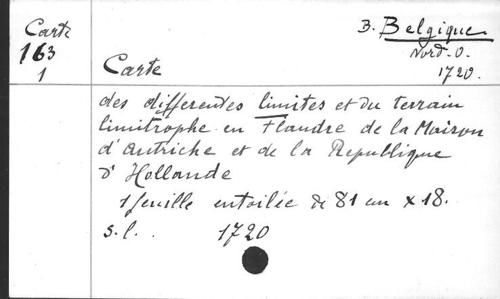 Carte
163
1
B. Belgique
Nord-O.
1720.
Carte
des differentes limites et du terrain
limitrophe en Flandre de la Maison
d'Autriche et de la Republique
d'Hollande
1 feuille entoilée de 81 cm x 18.
s.l. . 1720